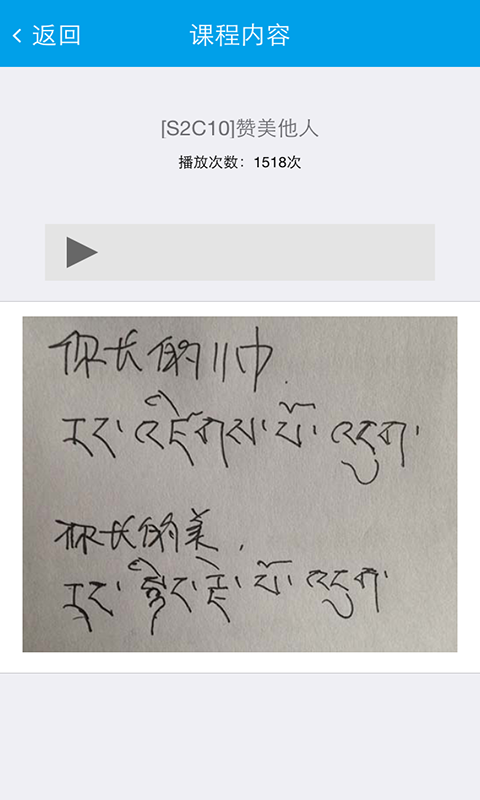 返回 课程内容
[S2C10]赞美他人
播放次数：1518次
你长的帅.
འདུག་
你长的美.
སྙིང་རྗེ་ པོ་ འདུག་